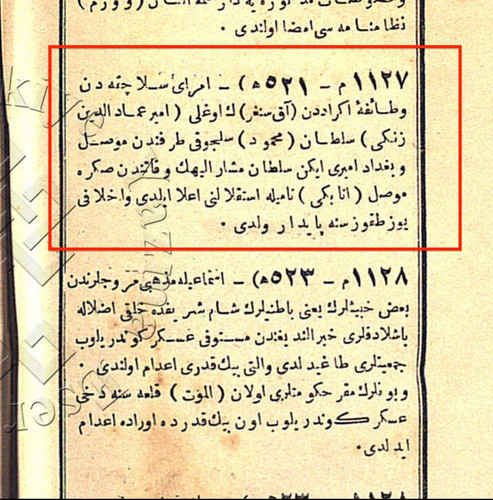 نظامنامه سى امضا اولندى ·
١١٢٧ م - ٥٢١ ه) - امراى سلاجقه دن
وطائفۀ اكراددن (آق سنغر) ك اوغلى (امير عماد الدين
زنكى) سلطان (محمود) سلجوقى طرفندن موصل
و بغداد اميرى ايكن سلطان مشار اليهك وفاتندن صكره
موصل (اتابكى) ناميله استقلالنى اعلا ايلدى واخلافى
يوز طقوز سنه پايدار ولدى ·
١١٢٨ م - ٥٢٣ ه) - اسماعيليه مذهبى مروجلرندن
بعض خبيثلرك يعنى باطنيلرك شام شهر يقنده خلقى اضلاله
باشلادقلرى خبر النديغندن مستوفى عسكر كوندريلوب
جمعيتلرى طاغيدلدى والتى بيك قدرى اعدام اولندى ·
وبونلرك مقر حكومتلرى اولان (الموت) قلعه سنه دخى
عسكر كوندريلوب اون بيك قدرده اوراده اعدام
ايدلدى.